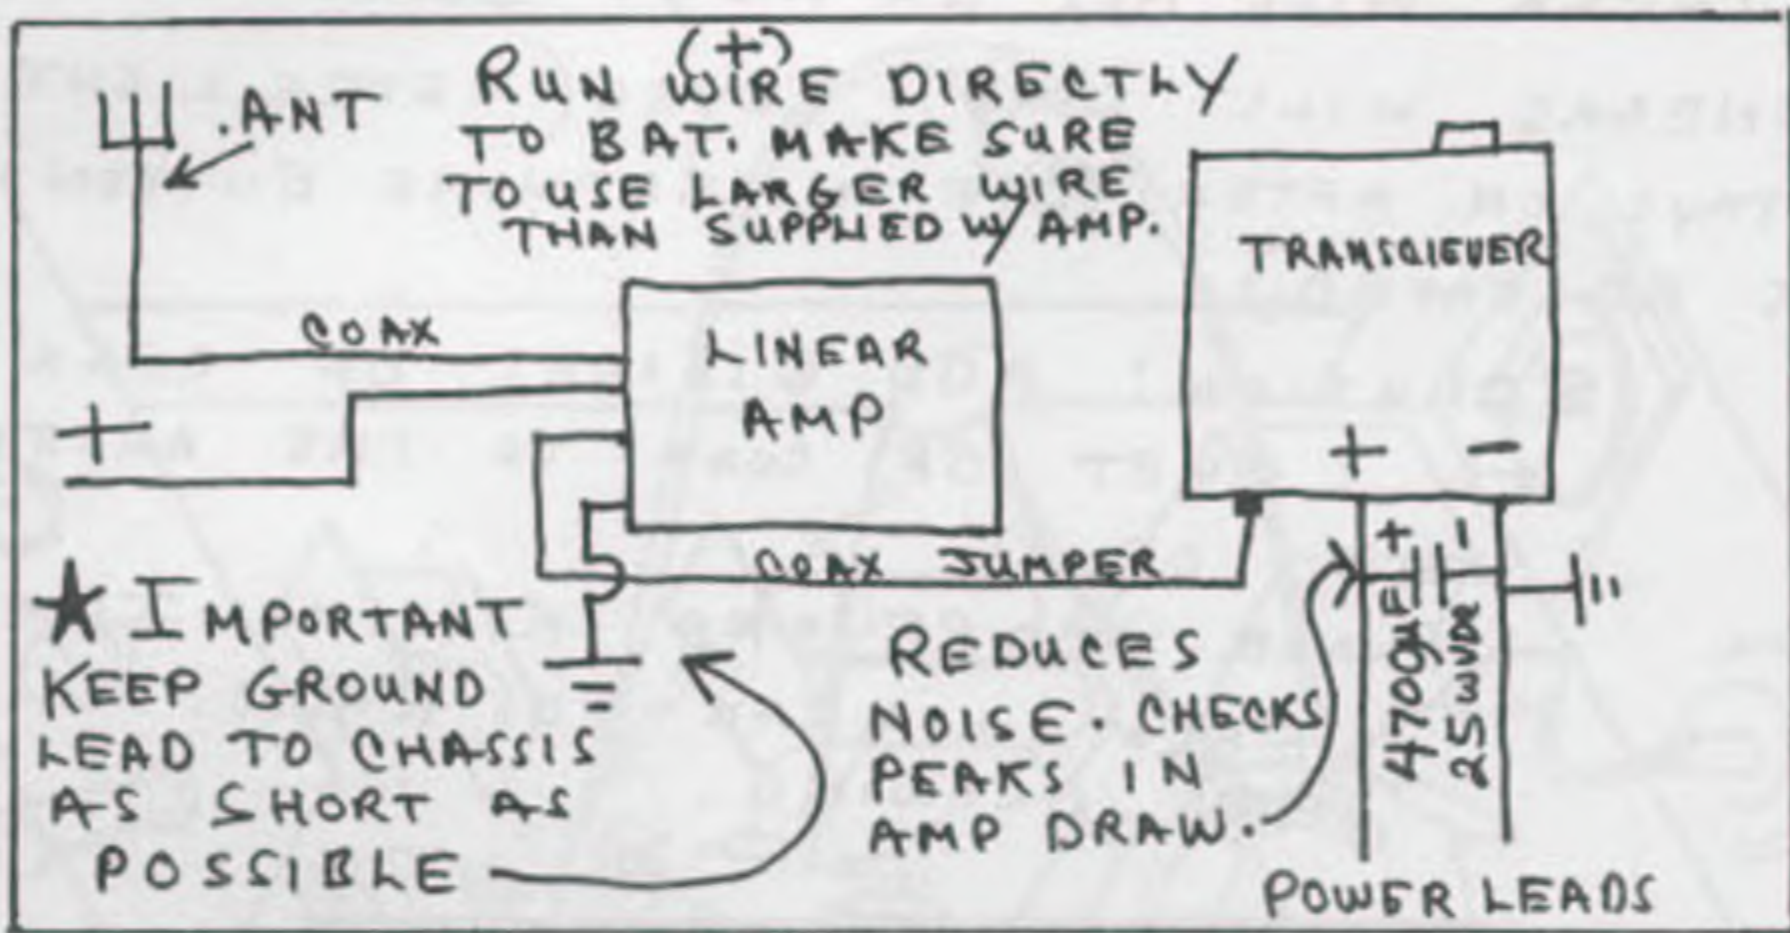 .ANT
(+)
RUN WIRE DIRECTLY
TO BAT. MAKE SURE
TO USE LARGER WIRE
THAN SUPPLIED W/ AMP.
TRANSCIEVER
+ −
COAX
LINEAR
AMP
+
COAX JUMPER
+ −
4700µF
25WVDC
★ IMPORTANT
KEEP GROUND
LEAD TO CHASSIS
AS SHORT AS
POSSIBLE
REDUCES
NOISE. CHECKS
PEAKS IN
AMP DRAW.
POWER LEADS